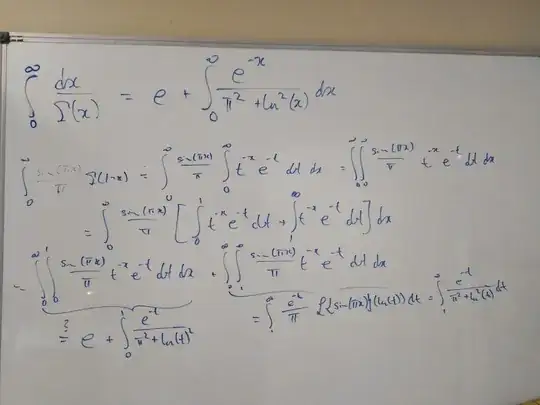 ∫₀^∞ dx/Γ(x) = e + ∫₀^∞ e^{-x}/(π² + ln²(x)) dx
∫₀^∞ sin(πx)/π Γ(1-x) = ∫₀^∞ sin(πx)/π ∫₀^∞ t^{-x} e^{-t} dt dx = ∫₀^∞∫₀^∞ sin(πx)/π t^{-x} e^{-t} dt dx
= ∫₀^∞ sin(πx)/π [∫₀^1 t^{-x} e^{-t} dt + ∫₁^∞ t^{-x} e^{-t} dt] dx
= ∫₀^∞∫₀^1 sin(πx)/π t^{-x} e^{-t} dt dx + ∫₀^∞∫₁^∞ sin(πx)/π t^{-x} e^{-t} dt dx
≟ e + ∫₀^1 e^{-t}/(π² + ln(t)²) = ∫₁^∞ e^{-t}/π ℒ{sin(πx)}(ln(t)) dt = ∫₁^∞ e^{-t}/(π² + ln²(t)) dt